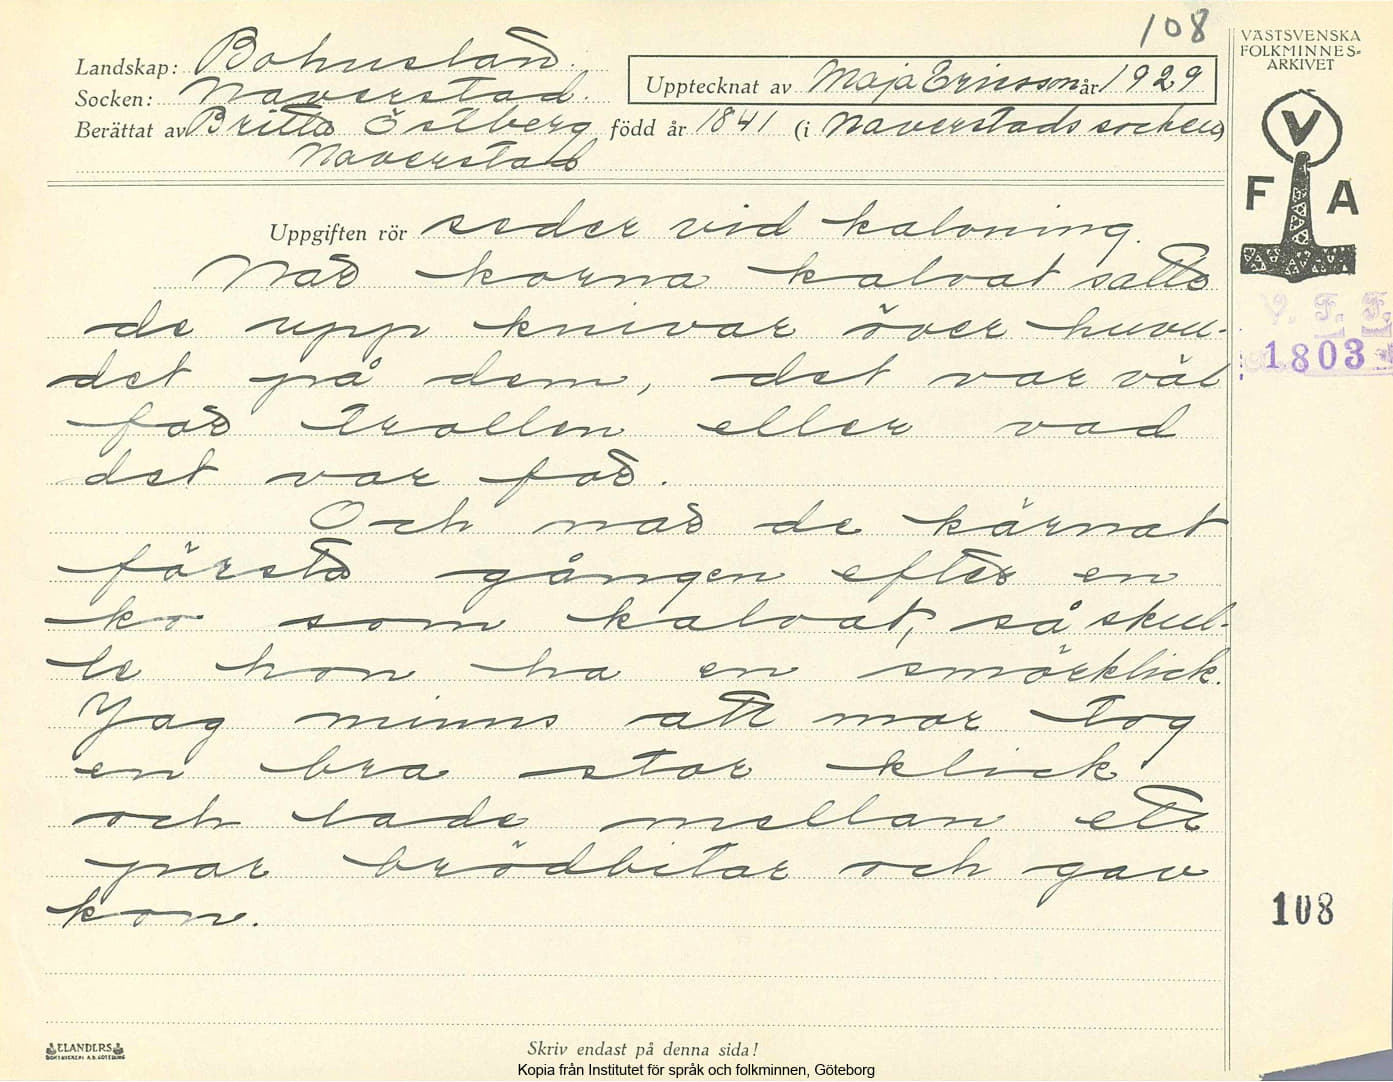 108
Landskap: Bohuslän
Socken: Naverstad
Upptecknat av Maja Ericsson år 1929
Berättat av Britta Östberg född år 1841 (i Naverstads socken)
Naverstad
VÄSTSVENSKA
FOLKMINNES-
ARKIVET
V
F A
Uppgiften rör seder vid kalvning.
När korna kalvat satte
de upp knivar över huvu-
det på dem, det var väl
för trollen eller vad
det var för.
Och när de kärnat
första gången efter en
ko som kalvat, så skul-
le hon ha en smörklick.
Jag minns att mor tog
en bra stor klick
och lade mellan ett
par brödbitar och gav
kon.
V. F. F.
1803
108
ELANDERS
BOKTRYCKERI A.B. GÖTEBORG
Skriv endast på denna sida!
Kopia från Institutet för språk och folkminnen, Göteborg